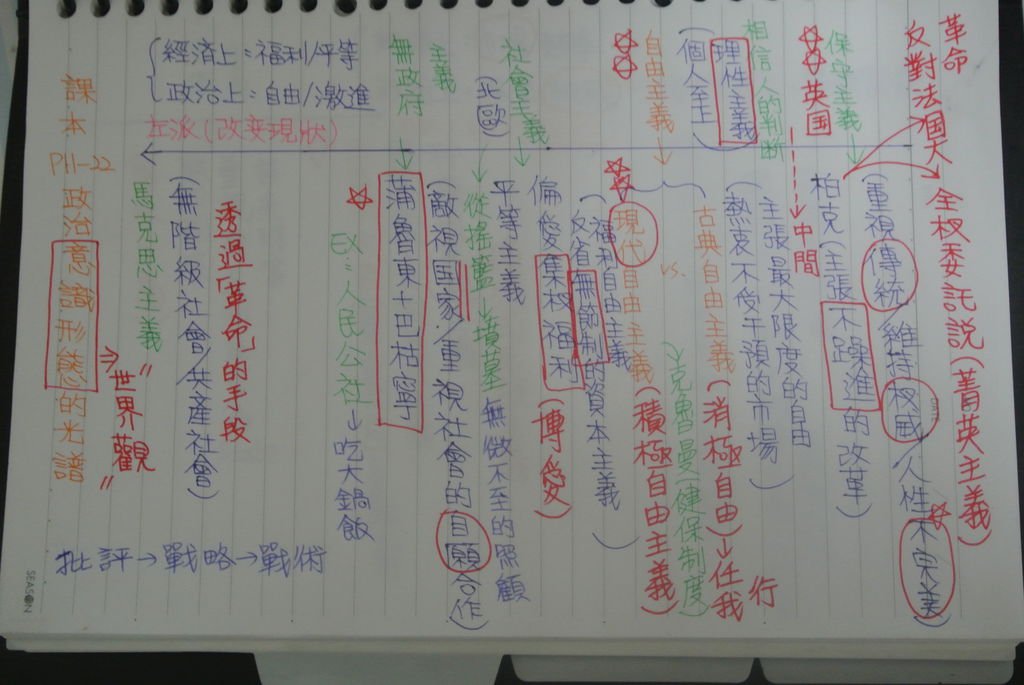 革命
反對法國大
全权委託說(菁英主義)
保守主義
英國
(重視傳統/維持权威/人性不完美)
柏克(主張不躁進的改革)
中間
相信人的判断
理性主義
(個人至上)
主張最大限度的自由
(熱衷不受干預的市場)
自由主義
古典自由主義(消極自由)→任我行
vs.
克魯曼—健保制度
現代自由主義(積極自由主義)
(福利自由主義
反省無節制的資本主義)
社會主義
(北歐)
偏愛集权福利(博愛)
平等主義
從搖籃→墳墓 無微不至的照顧
無政府
主義
(敵視国家/重視社會的自願合作)
蒲魯東+巴枯寧
EX:人民公社→吃大鍋飯
經濟上:福利/平等
政治上:自由/激進
左派(改变現狀)
透過「革命」的手段
(無階級社會/共產社會)
馬克思主義
⇒"世界觀"
課本P11-22 政治意識形態的光譜
批評→戰略→戰術
SEASON